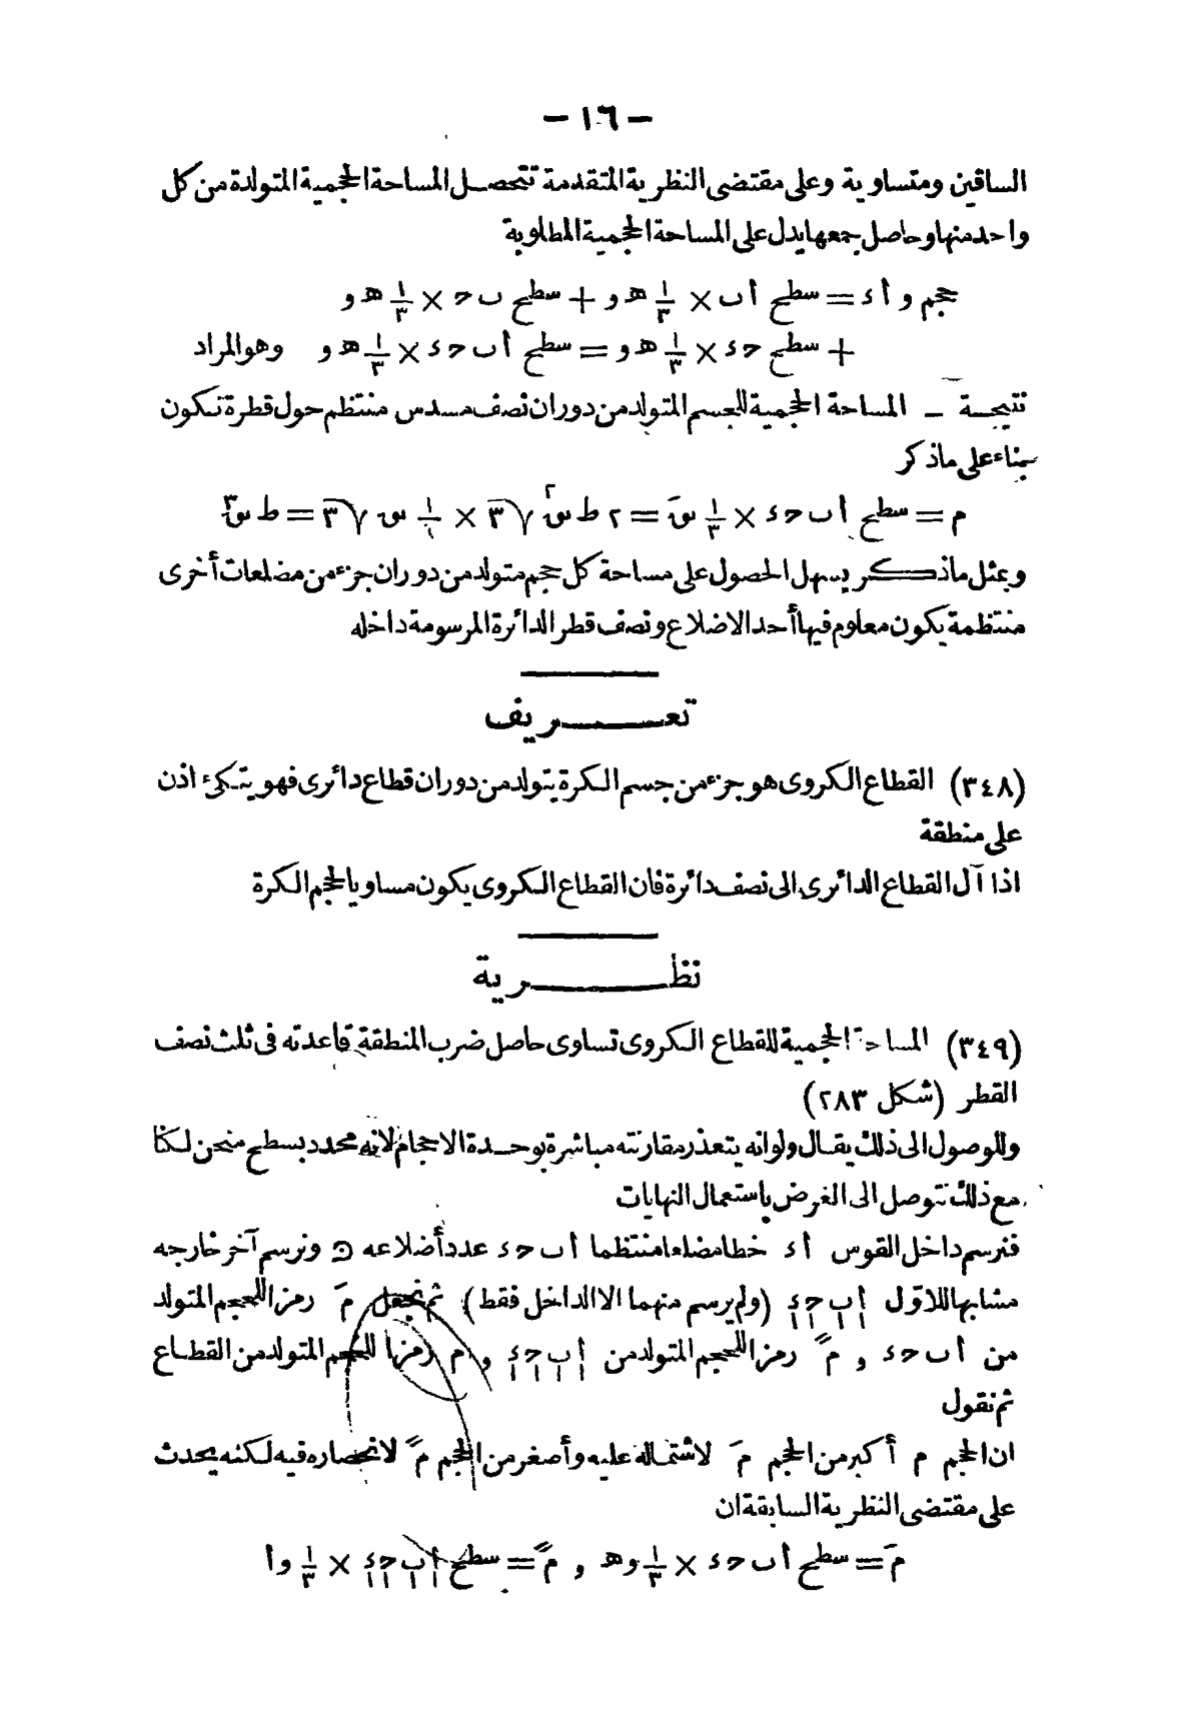 — ١٦ —
الساقين ومتساوية وعلى مقتضى النظرية المتقدمة تتحصل المساحة الحجمية المتولدة من كل
واحد منها وحاصل جمعها يدل على المساحة الحجمية المطلوبة
حجم و أ ء = سطح أ ب × ١/٣ هـ و + سطح ب ح × ١/٣ هـ و
+ سطح ح ء × ١/٣ هـ و = سطح أ ب ح ء × ١/٣ هـ و وهو المراد
نتيجة — المساحة الحجمية للجسم المتولد من دوران نصف مسدس منتظم حول قطرة تكون
بناء على ماذكر
م = سطح أ ب ح ء × ١/٣ نقَ = ٢ ط نق٢ √٣ × ١/٢ نق √٣ = ط نق٣
وبمثل ماذكر يسهل الحصول على مساحة كل حجم متولد من دوران جزء من مضلعات أخرى
منتظمة يكون معلوم فيها أحد الاضلاع ونصف قطر الدائرة المرسومة داخله
تعريف
(٣٤٨) القطاع الكروى هو جزء من جسم الكرة يتولد من دوران قطاع دائرى فهو يتكئ اذن
على منطقة
اذا آل القطاع الدائرى الى نصف دائرة فان القطاع الكروى يكون مساويا لحجم الكرة
نظرية
(٣٤٩) المساحة الحجمية للقطاع الكروى تساوى حاصل ضرب المنطقة قاعدته فى ثلث نصف
القطر (شكل ٢٨٣)
وللوصول الى ذلك يقال ولو انه يتعذر مقارنته مباشرة بوحدة الاحجام لانه محدد بسطح منحن لكنا
مع ذلك نتوصل الى الغرض باستعمال النهايات
فنرسم داخل القوس أ ء خطا مضلعا منتظما أ ب ح ء عدد أضلاعه ن ونرسم آخر خارجه
مشابها للاوّل أ ب ح ء (ولم يرسم منهما الا الداخل فقط) ثم نجعل مَ رمزا للحجم المتولد
من أ ب ح ء و مً رمزا للحجم المتولد من أ ب ح ء و م رمزا للحجم المتولد من القطاع
ثم نقول
ان الحجم م أكبر من الحجم مَ لاشتماله عليه وأصغر من الحجم مً لانحصاره فيه لكنه يحدث
على مقتضى النظرية السابقة ان
مَ = سطح أ ب ح ء × ١/٣ و هـ و مً = سطح أ ب ح ء × ١/٣ و أ